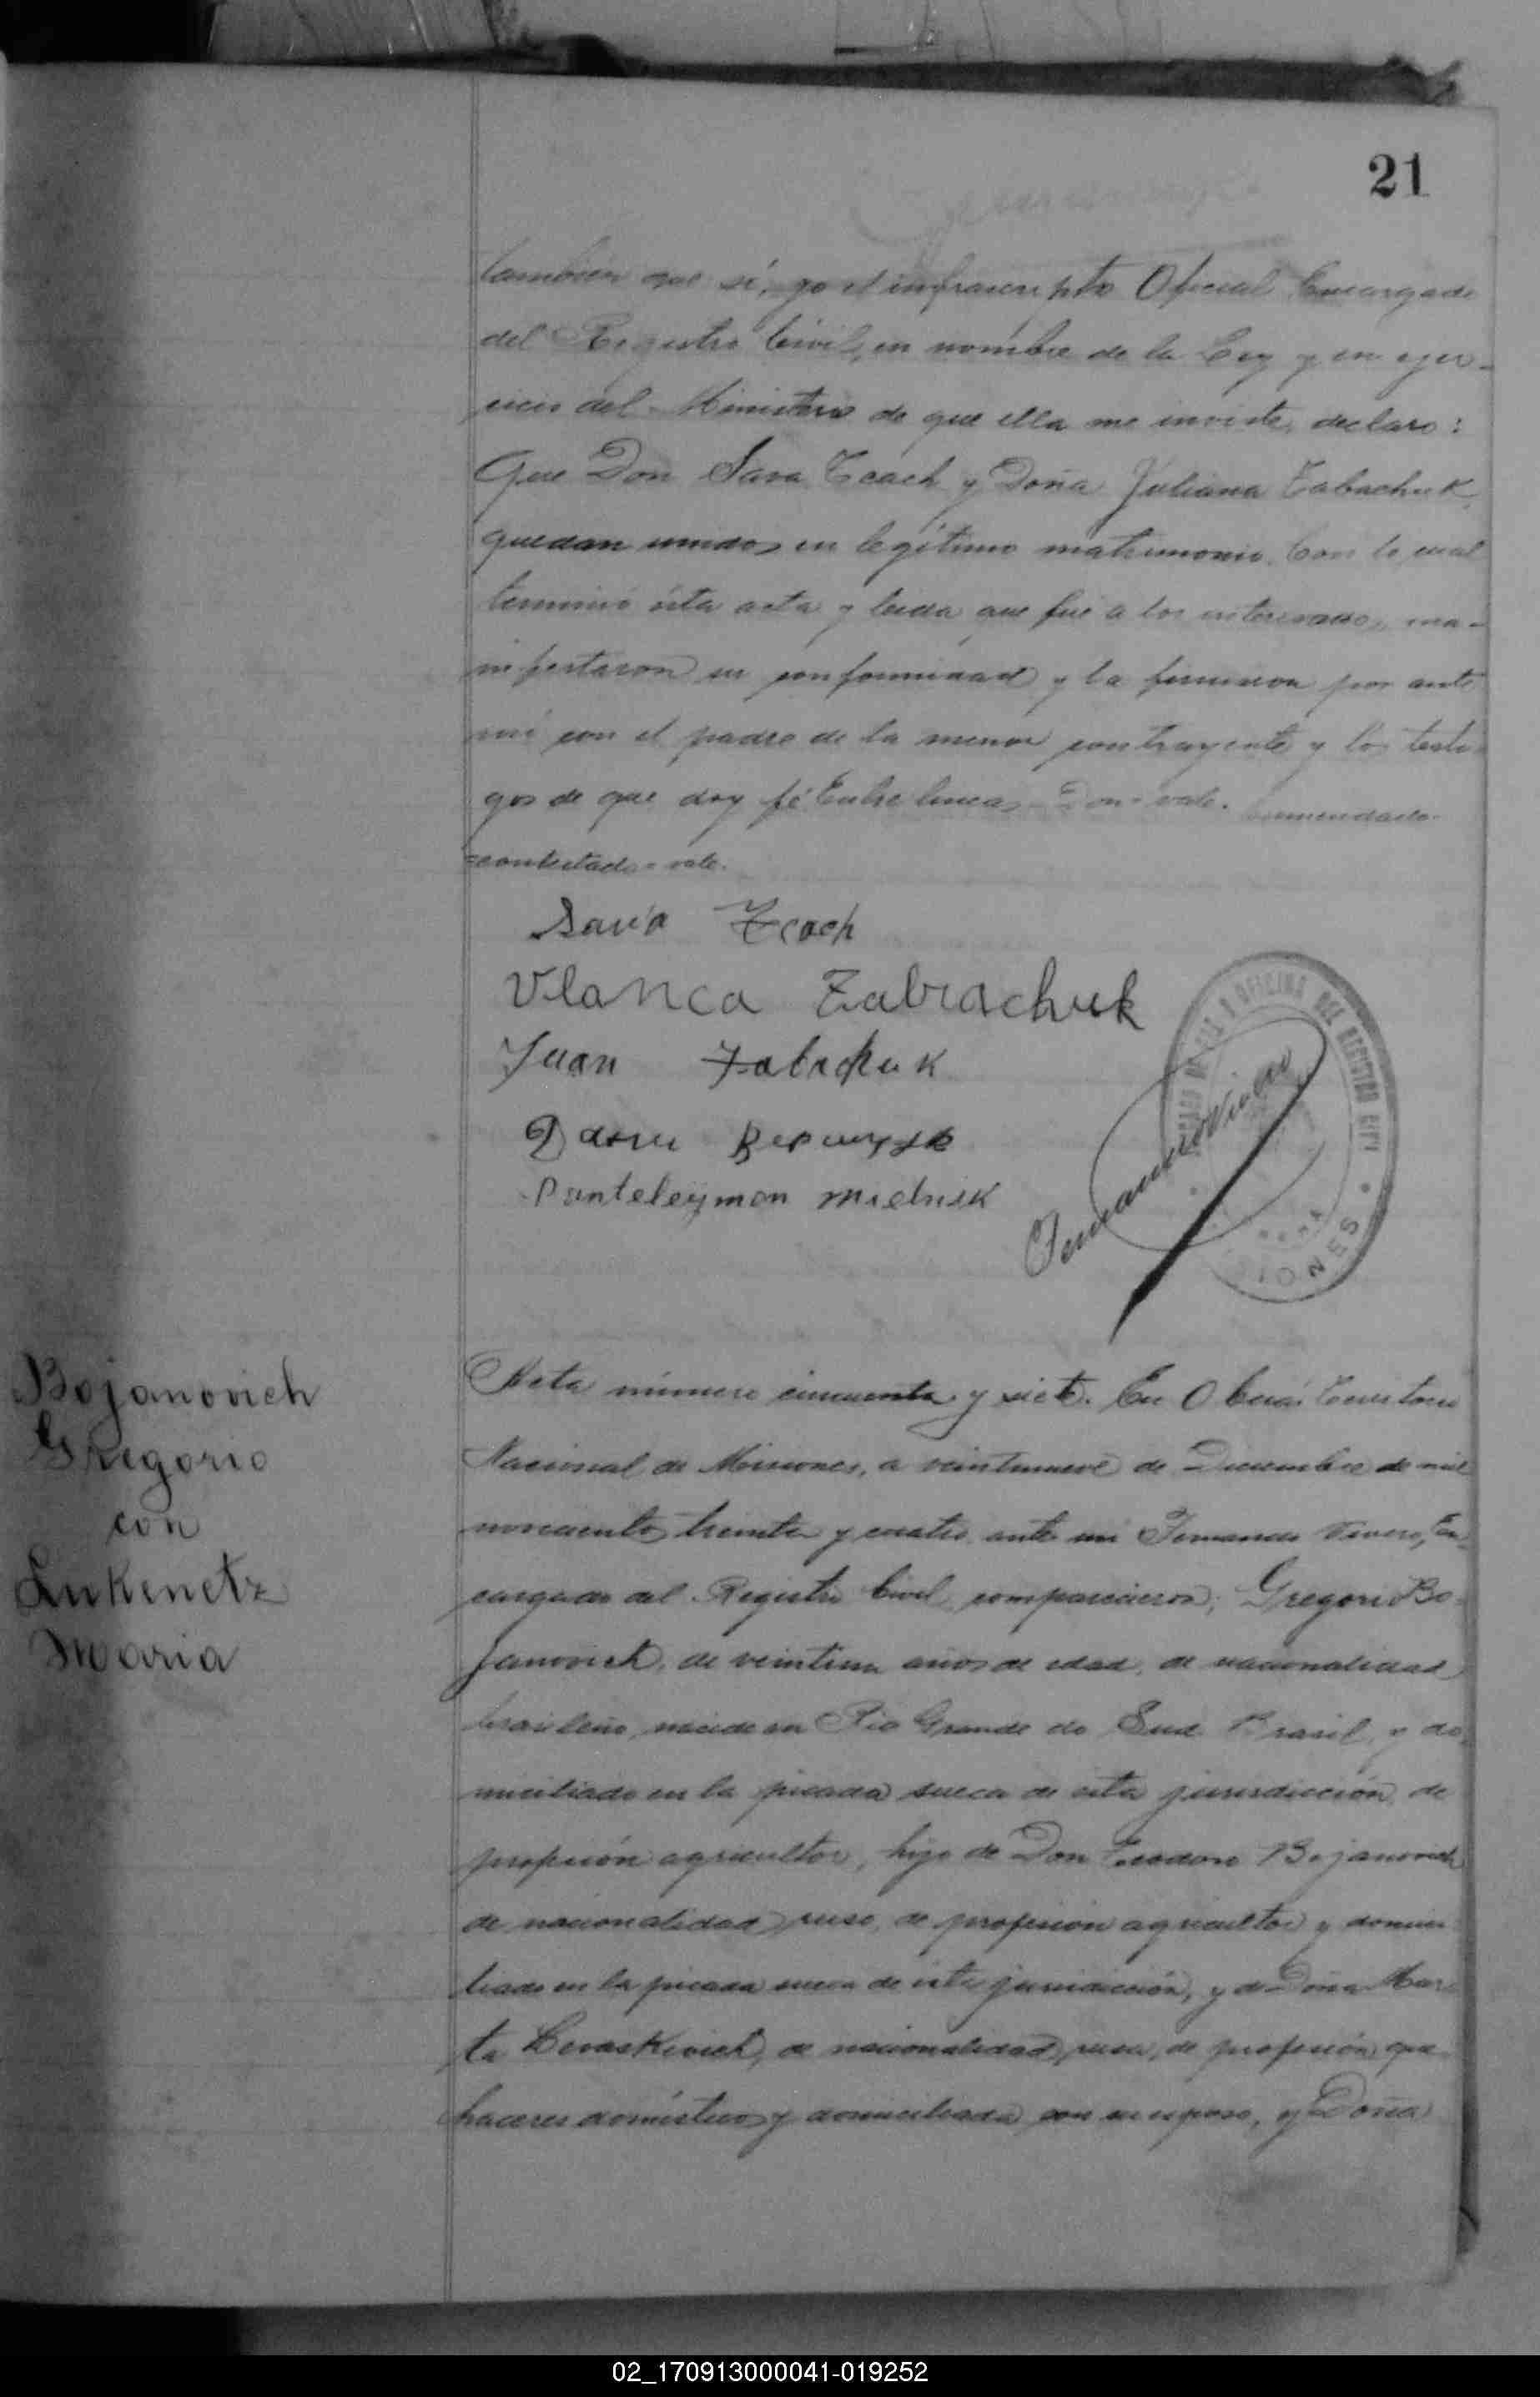 21
tambien que sí, yo el infrascripto Oficial Encargado
del Registro Civil, en nombre de la Ley y en ejer-
cicio del Ministerio de que ella me inviste, declaro:
Que Don Sava Tcach y Doña Juliana Tabachuk
quedan unidos en legítimo matrimonio. Con lo cual
terminó ésta acta y leida que fué a los interesados, ma-
nifestaron su conformidad y la firmaron por ante
mí con el padre de la menor contrayente y los testi-
gos de que doy fé. Entre lineas - Don - vale. Enmendado -
=contestado - vale.
Sava Tcach
Vlanca Tabrachuk
Juan Tabachuk
Panteleymon Mielnik
Fernando Vivero
OFICINA DEL REGISTRO CIVIL
MISIONES
Bojanovich
Gregorio
con
Lukenetz
Maria
Acta número cincuenta y siete. En Oberá Territorio
Nacional de Misiones, a veintinueve de Diciembre de mil
novecientos treinta y cuatro, ante mi Fernando Vivero, En-
cargado del Registro Civil, comparecieron; Gregorio Bo-
janovich, de veintiun años de edad, de nacionalidad
brasileño, nacido en Rio Grande do Sud Brasil, y do-
miciliado en la picada sueca de esta jurisdicción, de
profesión agricultor, hijo de Don Teodoro Bojanovich
de nacionalidad ruso, de profesion agricultor y domici-
liado en la picada sueca de esta jurisdicción, y de Doña Mar-
ta de nacionalidad rusa, de profesión que-
haceres domésticos y domiciliada con su esposo, y Doña
02_170913000041-019252